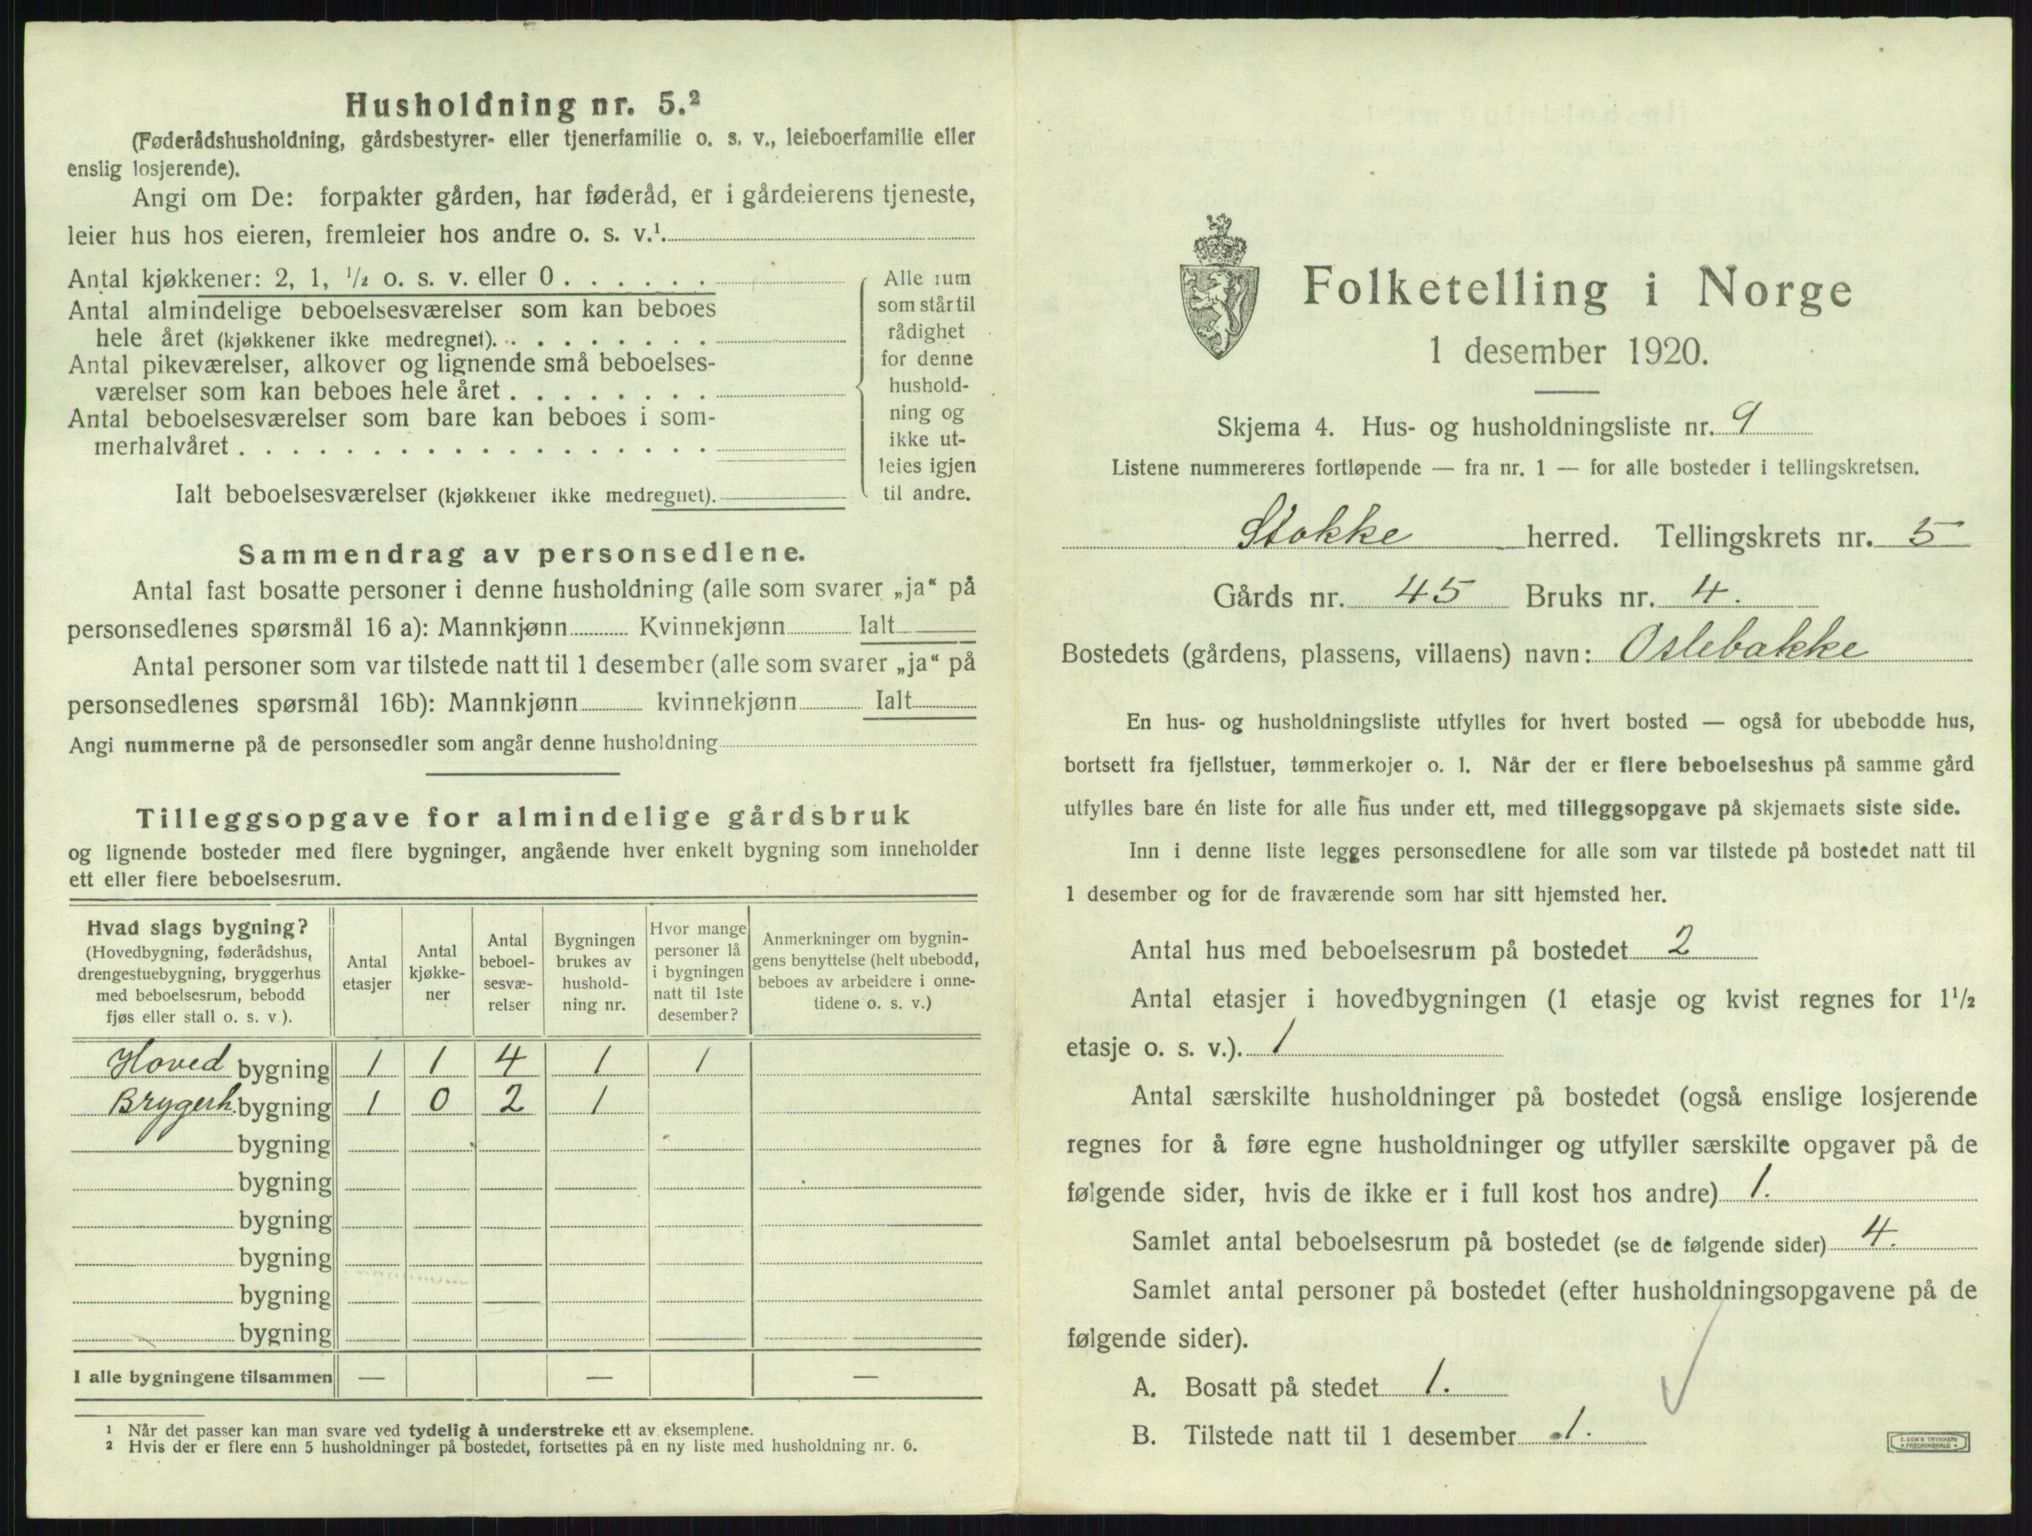 Husholdning nr. 5.²
(Føderådshusholdning, gårdsbestyrer- eller tjenerfamilie o. s. v., leieboerfamilie eller
enslig losjerende).
Angi om De: forpakter gården, har føderåd, er i gårdeierens tjeneste,
leier hus hos eieren, fremleier hos andre o. s. v.¹
Antal kjøkkener: 2, 1, ½ o. s. v. eller 0 . . . . . .
Antal almindelige beboelsesværelser som kan beboes
hele året (kjøkkener ikke medregnet). . . . . . . . .
Antal pikeværelser, alkover og lignende små beboelses-
værelser som kan beboes hele året . . . . . . . .
Antal beboelsesværelser som bare kan beboes i som-
merhalvåret . . . . . . . . . . . . . . . . . .
Ialt beboelsesværelser (kjøkkener ikke medregnet).
Alle rum
som står til
rådighet
for denne
hushold-
ning og
ikke ut-
leies igjen
til andre.
Sammendrag av personsedlene.
Antal fast bosatte personer i denne husholdning (alle som svarer „ja“ på
personsedlenes spørsmål 16 a): Mannkjønn Kvinnekjønn Ialt
Antal personer som var tilstede natt til 1 desember (alle som svarer „ja“ på
personsedlenes spørsmål 16b): Mannkjønn kvinnekjønn Ialt
Angi nummerne på de personsedler som angår denne husholdning
Tilleggsopgave for almindelige gårdsbruk
og lignende bosteder med flere bygninger, angående hver enkelt bygning som inneholder
ett eller flere beboelsesrum.
Hvad slags bygning?
(Hovedbygning, føderådshus,
drengestuebygning, bryggerhus
med beboelsesrum, bebodd
fjøs eller stall o. s. v.).
Antal
etasjer
Antal
kjøkke-
ner
Antal
beboel-
sesvæ-
relser
Bygningen
brukes av
hushold-
ning nr.
Hvor mange
personer lå
i bygningen
natt til 1ste
desember?
Anmerkninger om bygnin-
gens benyttelse (helt ubebodd,
beboes av arbeidere i onne-
tidene o. s. v.)
Hoved bygning 1 1 4 1 1
Brygerh. bygning 1 0 2 1
bygning
bygning
bygning
bygning
bygning
bygning
I alle bygningene tilsammen — — —
¹ Når det passer kan man svare ved tydelig å understreke ett av eksemplene.
² Hvis der er flere enn 5 husholdninger på bostedet, fortsettes på en ny liste med husholdning nr. 6.
Folketelling i Norge
1 desember 1920.
Skjema 4. Hus- og husholdningsliste nr. 9
Listene nummereres fortløpende — fra nr. 1 — for alle bosteder i tellingskretsen.
Stokke herred. Tellingskrets nr. 5
Gårds nr. 45 Bruks nr. 4.
Bostedets (gårdens, plassens, villaens) navn: Oslebakke
En hus- og husholdningsliste utfylles for hvert bosted — også for ubebodde hus,
bortsett fra fjellstuer, tømmerkojer o. l. Når der er flere beboelseshus på samme gård
utfylles bare én liste for alle hus under ett, med tilleggsopgave på skjemaets siste side.
Inn i denne liste legges personsedlene for alle som var tilstede på bostedet natt til
1 desember og for de fraværende som har sitt hjemsted her.
Antal hus med beboelsesrum på bostedet 2
Antal etasjer i hovedbygningen (1 etasje og kvist regnes for 1½
etasje o. s. v.). 1
Antal særskilte husholdninger på bostedet (også enslige losjerende
regnes for å føre egne husholdninger og utfyller særskilte opgaver på de
følgende sider, hvis de ikke er i full kost hos andre) 1.
Samlet antal beboelsesrum på bostedet (se de følgende sider) 4.
Samlet antal personer på bostedet (efter husholdningsopgavene på de
følgende sider).
A. Bosatt på stedet 1.
B. Tilstede natt til 1 desember 1.